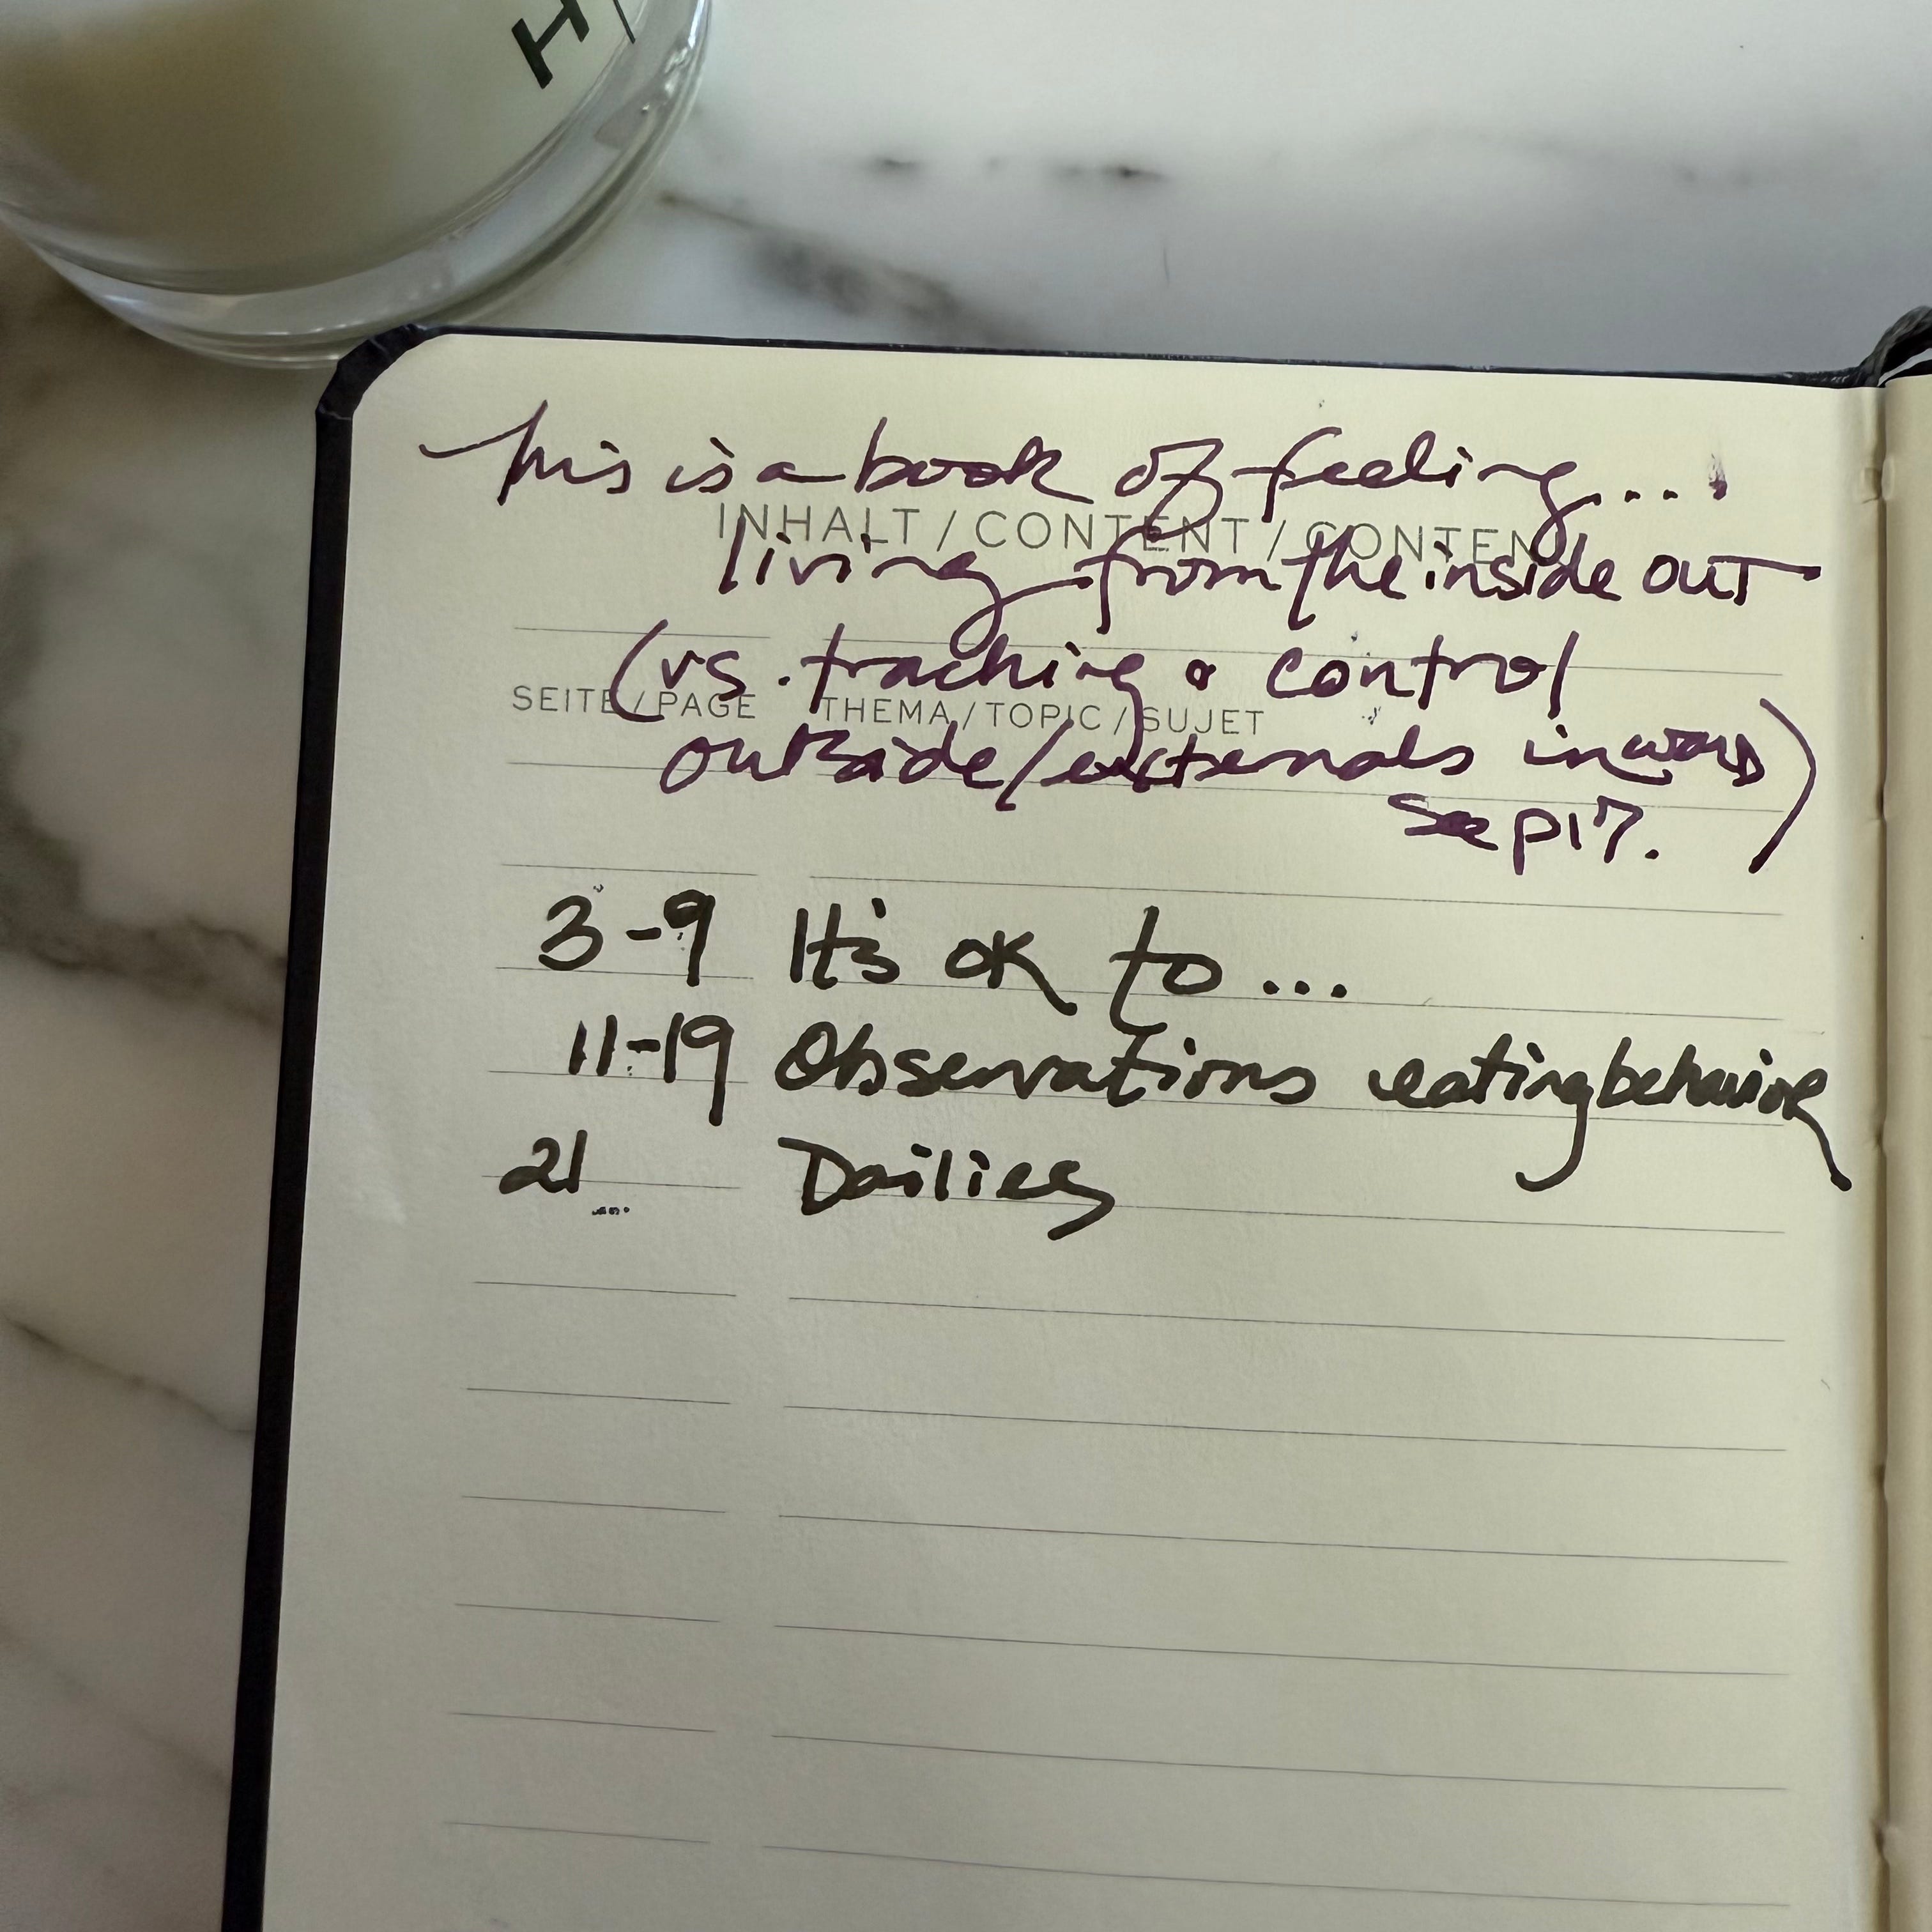 H
This is a book of feeling....
INHALT / CONTENT / CONTENU
living from the inside out
(vs. tracking & control
SEITE / PAGE THEMA / TOPIC / SUJET
outside/externals inward)
See p17.
3-9 It's OK to...
11-19 Observations eating behavior
21... Dailies